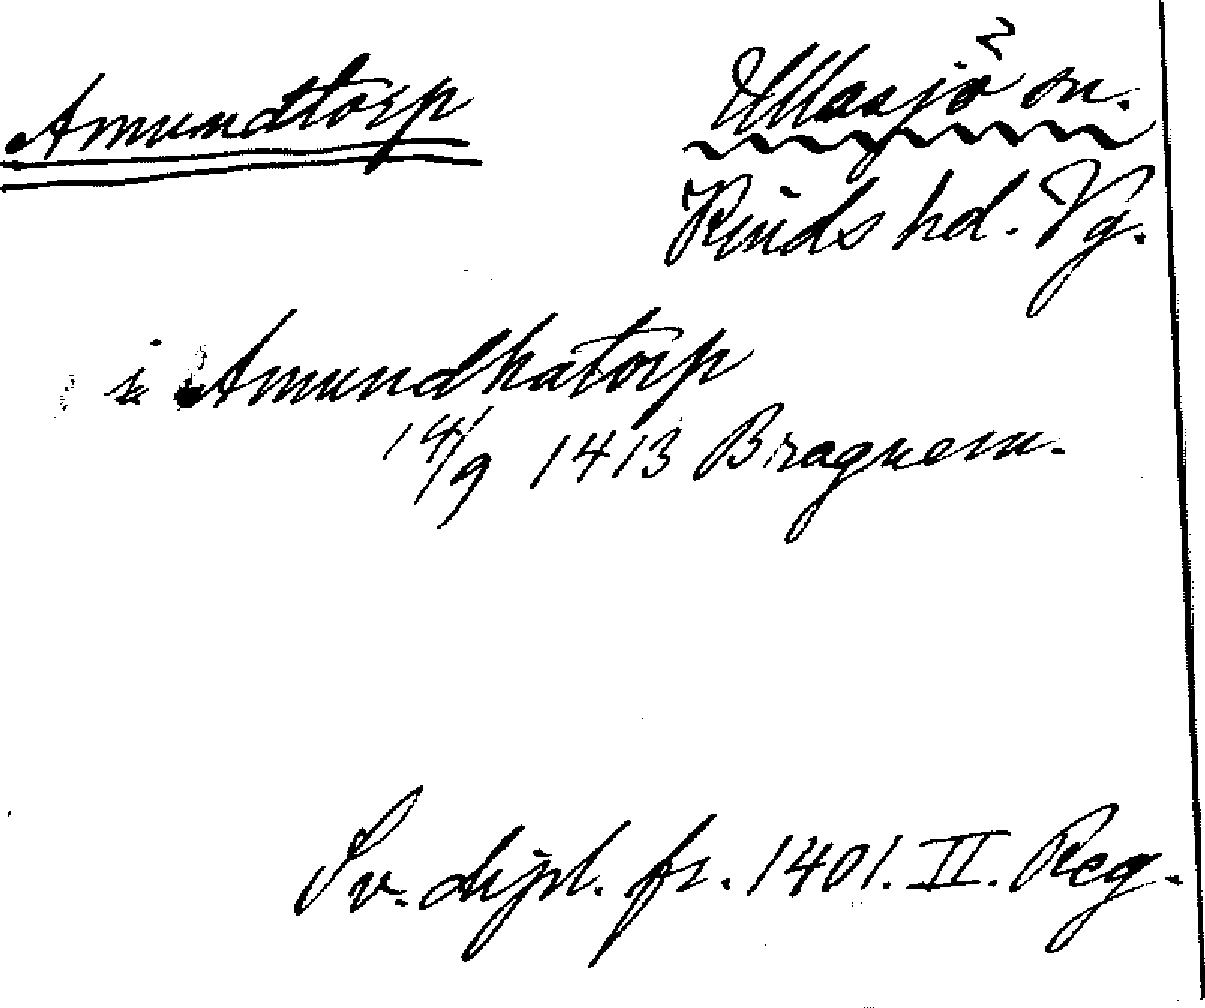 Amundtorp
Ullasjö sn. 2
Kinds hd. Vg.
i Amundhatorp
14/9 1413 Bragnem.
Sv. dipl. fr. 1401. II. Reg.